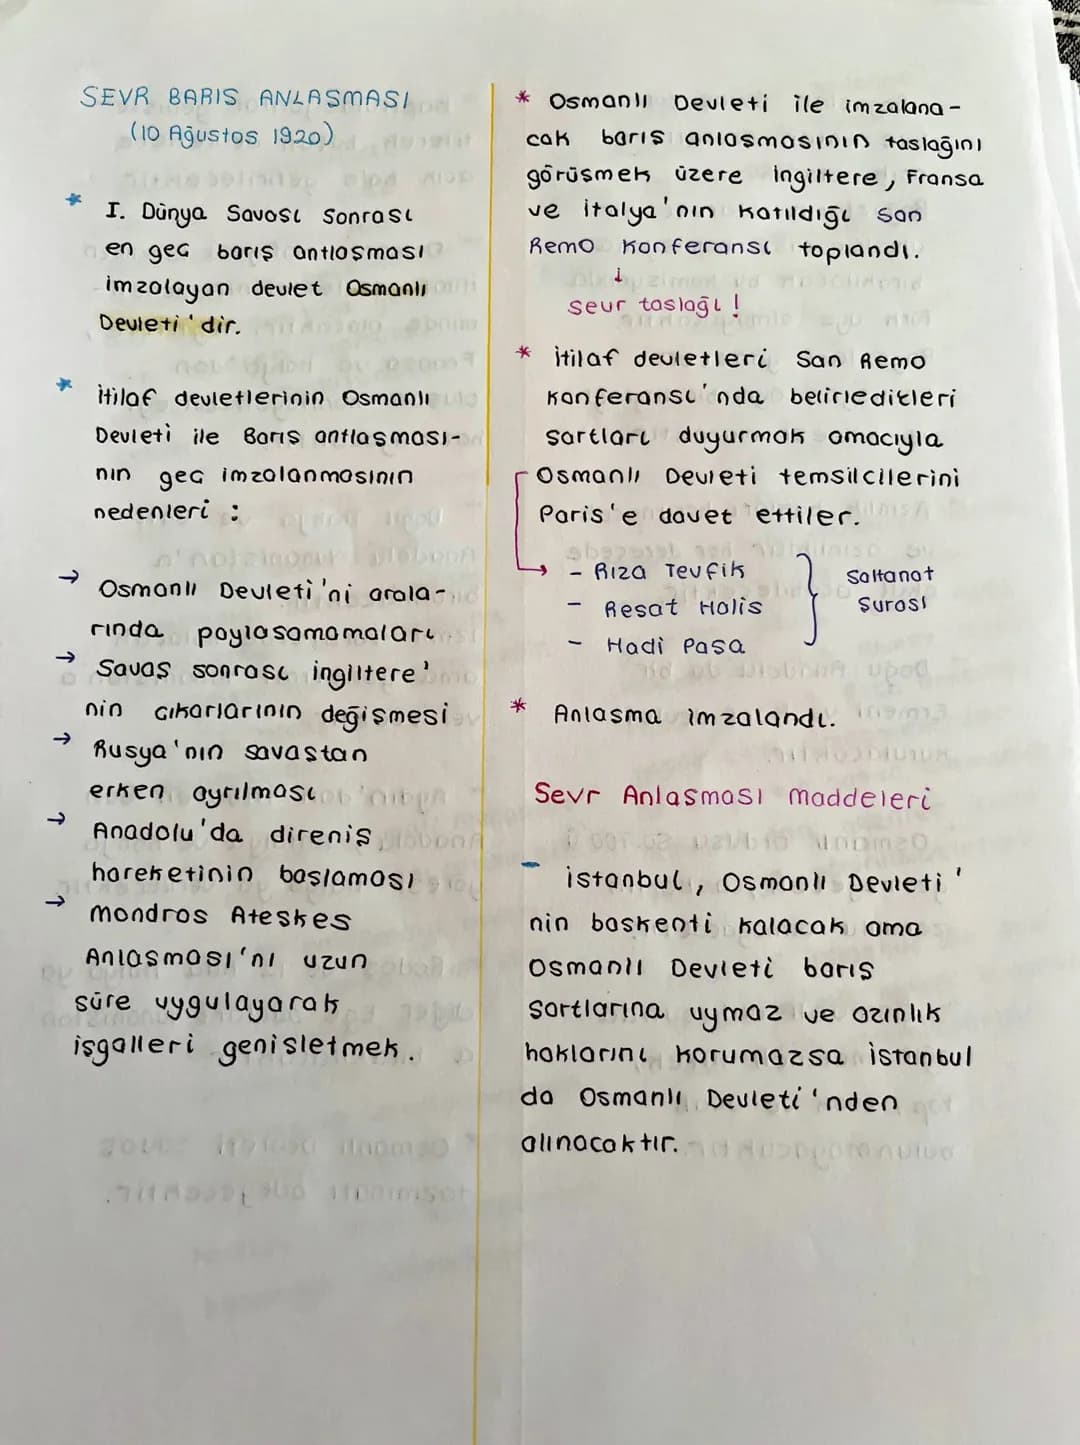 SEVR BARIS ANLASMASI
(10 Ağustos 1920)
* I. Dünya Savası sonrası
en geç barış antlaşması
imzalayan devlet Osmanlı
Devleti'dir.
* İtilaf devletlerinin Osmanlı
Devleti ile Barış antlaşması-
nın geç imzalanmasının
nedenleri :
→ Osmanlı Devleti'ni arala-
rında paylasamamaları
→ Savaş sonrası ingiltere'
nin cıkarlarının değişmesi
→ Rusya'nın savastan
erken ayrılması
→ Anadolu'da direniş
hareketinin başlaması
→ Mondros Ateskes
Anlaşması'nı uzun
süre uygulayarak
işgalleri genisletmek.
* Osmanlı Devleti ile imzalana-
cak barış anlaşmasının taslağını
görüşmek üzere ingiltere, Fransa
ve italya'nın katıldığı san
Remo Konferansı toplandı.
↓
sevr taslağı !
* itilaf devletleri San Remo
Konferansı'nda belirledikleri
sartları duyurmak amacıyla
Osmanlı Devleti temsilcilerini
Paris'e davet ettiler.
→ - Rıza Tevfik
- Resat Halis
- Hadi Pasa
} Saltanat
Surası
* Anlasma imzalandı.
Sevr Anlaşması maddeleri
- istanbul, Osmanlı Devleti'
nin baskenti kalacak ama
Osmanlı Devleti barış
sartlarına uymaz ve azınlık
haklarını korumazsa istanbul
da Osmanlı Devleti'nden
alınacaktır.